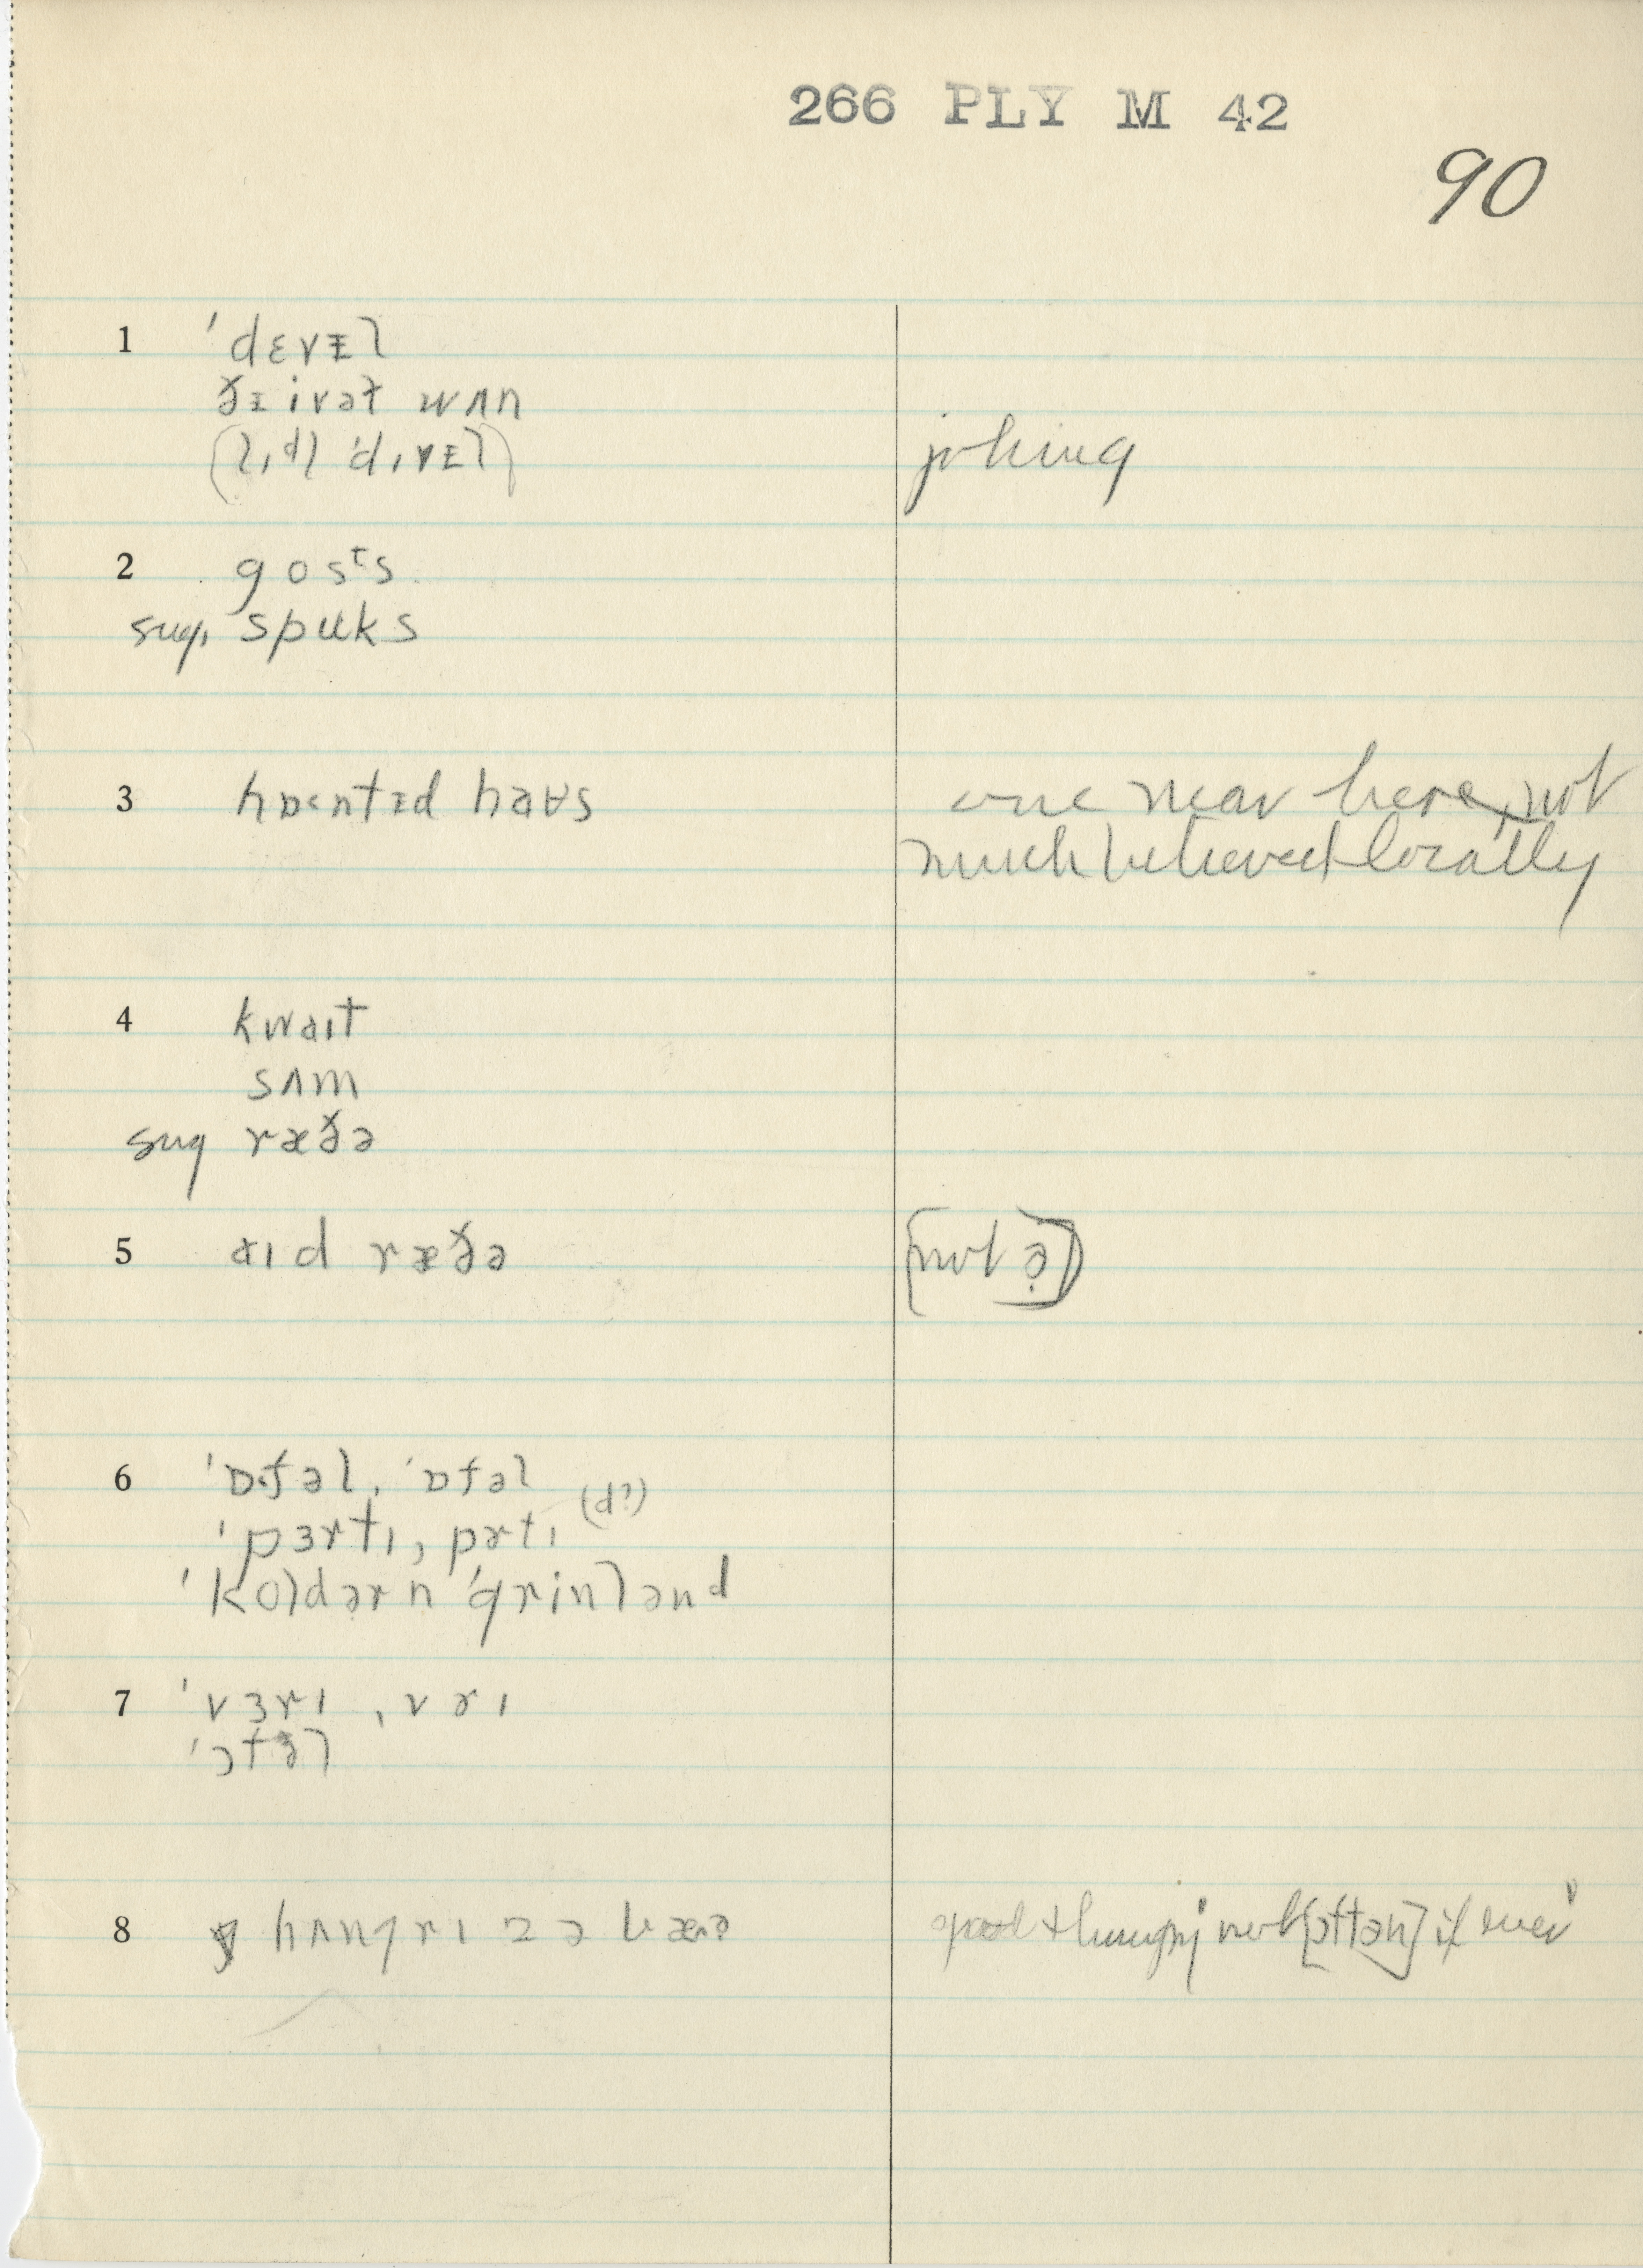 266 PLY M 42
90
1 ˈdɛvᵻl
ðᵻ ivəl wʌn
(lɪdl ˈdɪvᵻl) joking
2 gosᵗs
sug. spuks
3 hɒ˂ntᵻd haʊs one near here, not
much believed locally
4 kwaɪt
sʌm
sug ræðə
5 aɪd ræðə [not ə̣]
6 ˈɒ·fəl, ˈɒfəl
ˈpɜrtɪ, pɚtɪ (d?)
ˈkoldər n ˈgrinlənd
7 ˈvɜrɪ, vɚɪ
8 hʌŋgrɪ əz ə bæə + hungry not [ɔftən] if ever